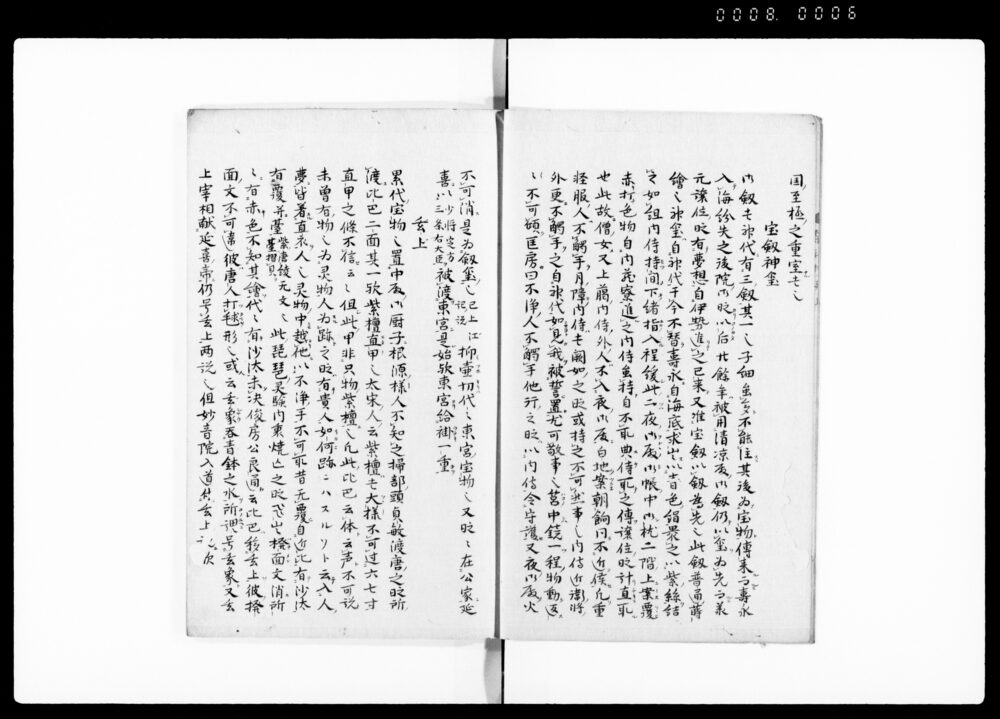 0008.0006
国至極之重宝也
宝劔神璽
内劔者神代有三劔其一也子細雖多不能注其後為宝物傳来而寿永
入海紛失之後院御時以后北餘年被用清凉殿御劔仍以璽為先而承
元譲位時有夢想自伊勢進之已来又准宝劔以劔為先也此劔普通蒔
絵也神璽自神代于今不替寿永自海底求出以青色絹裹之以紫絲結
之如組内侍持間下緒指入程緩此二夜御殿御帳中御枕二階上案覆
赤打色物自内蔵寮進之内侍雖持自不取典侍取之傳譲位時計直取
也此故僧女又上﨟内侍外人不入夜御殿白地案朝餉同不近候凡重
軽服人不觸手月障内侍者闕如之時或持之不可然事也内侍近衛将
外更不觸手之自神代如見我被誓置尤可敬事也筥中鏡一程物動返
不可傾匡房曰不浄人不觸手他行之時以内侍令守護又夜御殿火
不可消是為劔璽也已上江記説抑壷切代々東宮宝物也又時々在公家延
喜以少将定方三条右大臣被渡東宮是始歟東宮給褂一重
玄上
累代宝物也置中殿御厨子根源様人不知之掃部頭貞敏渡唐之時所
渡比巴二面其一歟紫檀直甲也太宋人云紫檀者大様不可過六七寸
直甲之條不信云々但此甲非只物紫檀也凡此比巴云体云声不可説
未曾有物也為灵物人為跡之時有貴人如何跡ニハスルソト云入人
夢皆著直衣人也灵物中越他以不浄手不可取昔无覆自近比有沙汰
有覆并臺紫唐綾元文也臺摺貝此琵琶灵験内裏焼亡之時飛出撥面文消所
有赤色不知其絵代々有沙汰未决俊房公良通云比巴移玄上彼撥
面文不可常彼唐人打毬形也或云玄象吞青鉢之水所謂号玄象又云
上宰相献延喜帝仍号玄上両説也但妙音院入道焦玄上之次